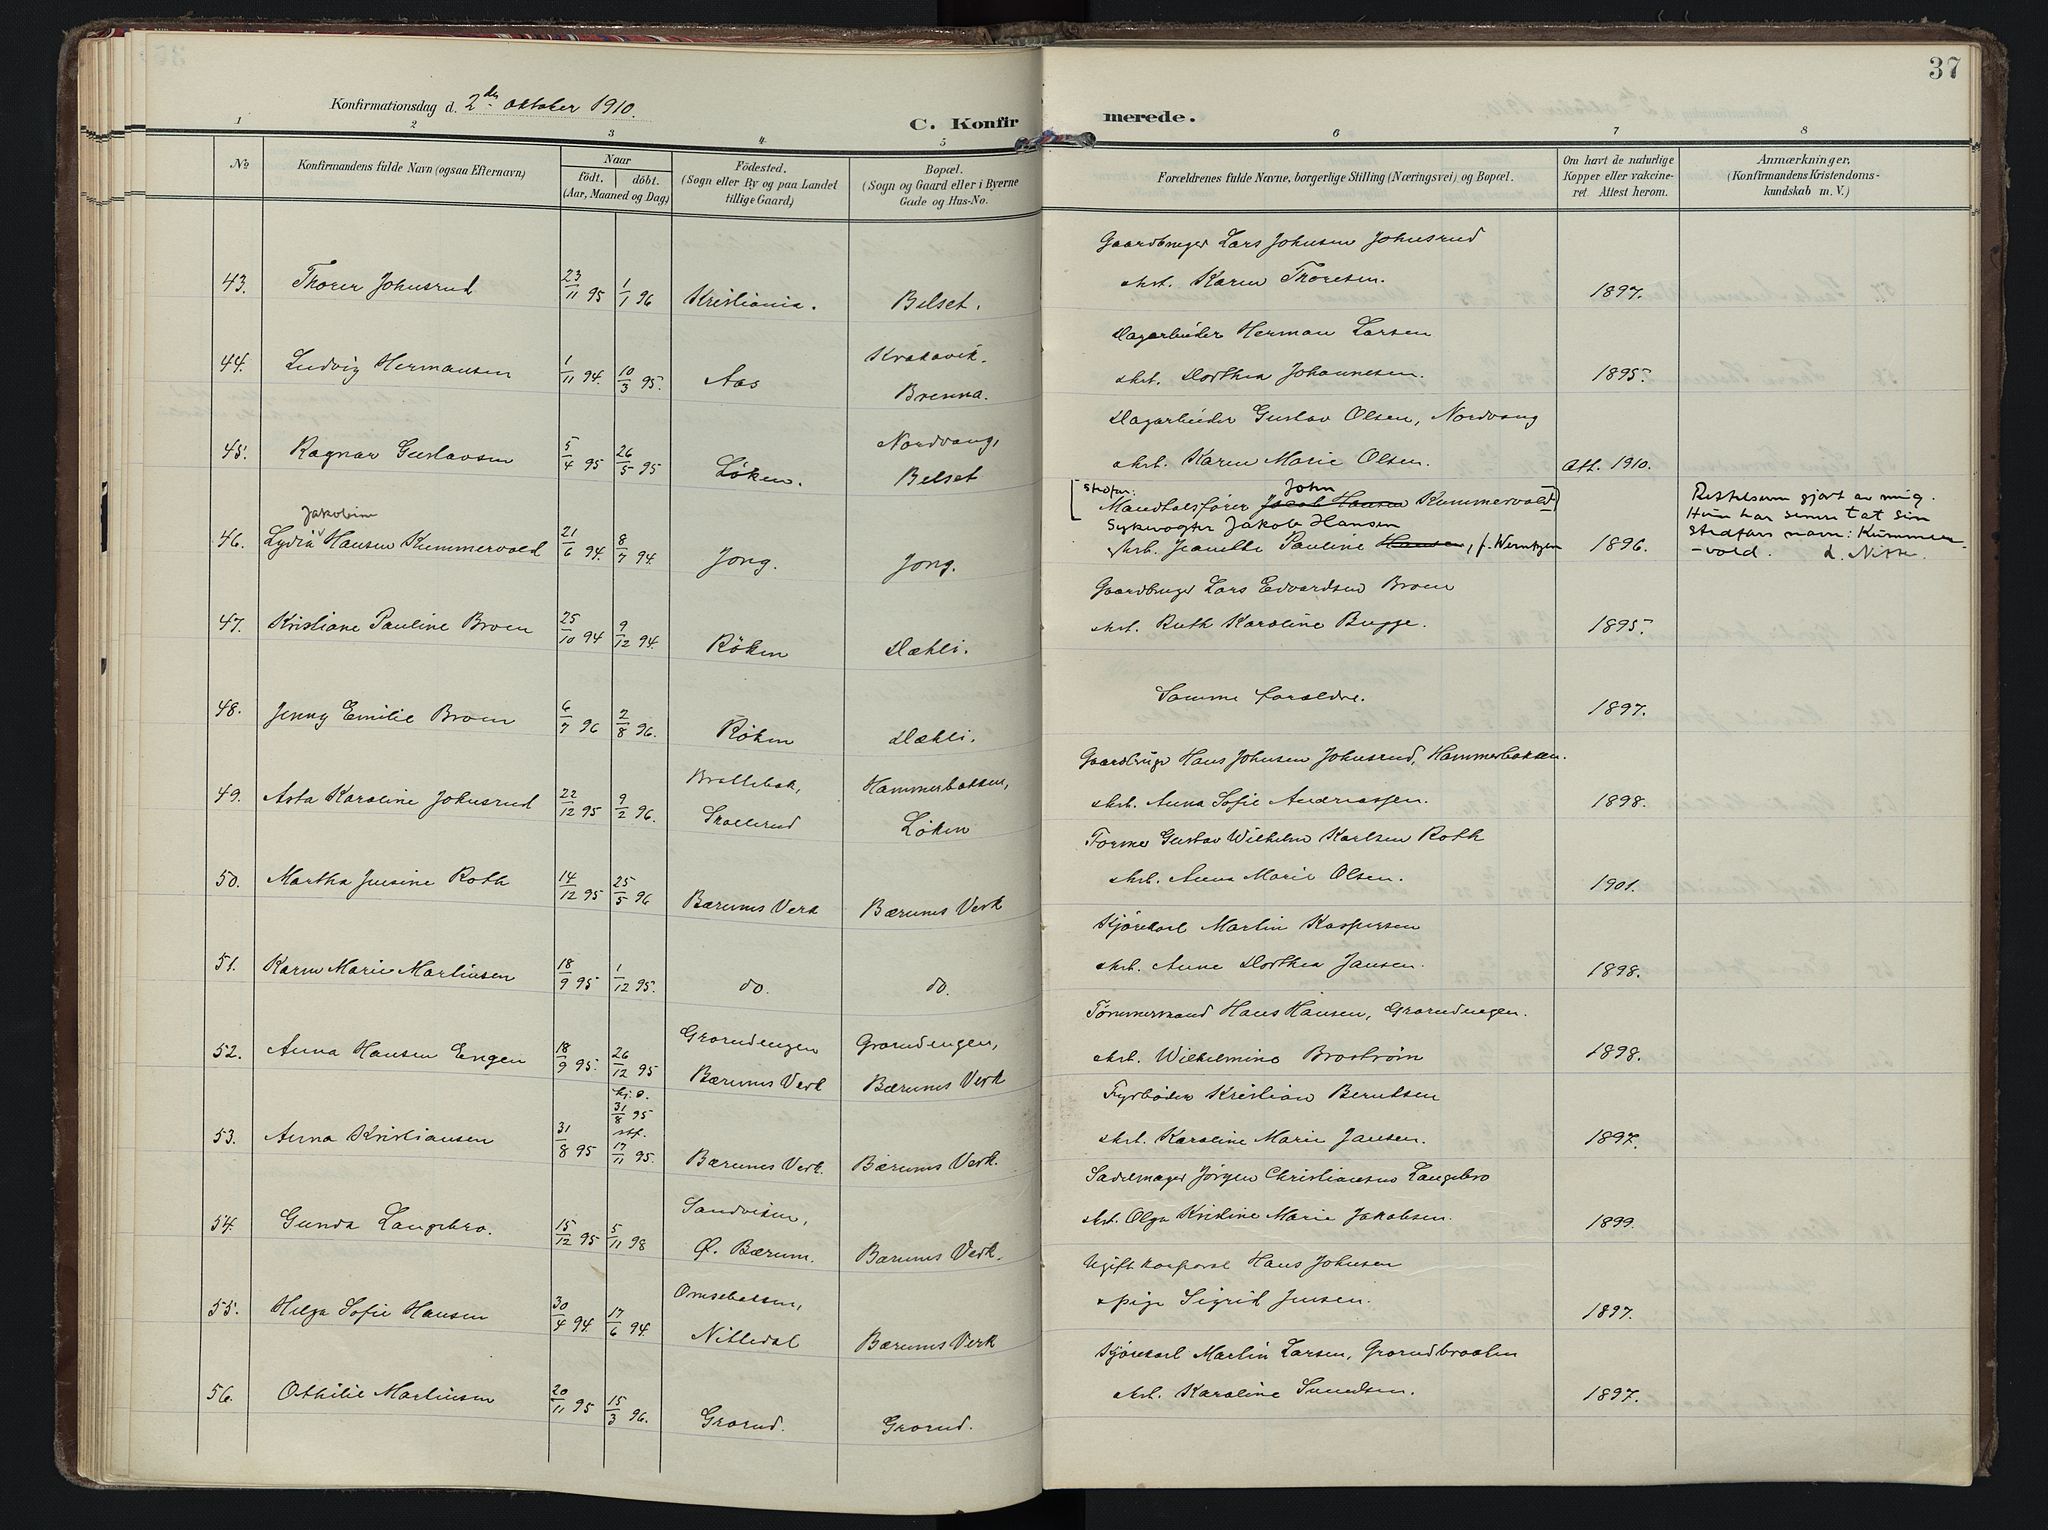 37
Konfirmationsdag d. 2den oktober 1910.
C. Konfirmerede.
1 2 3 4 5 6 7 8
No
Konfirmandens fulde Navn (ogsaa Efternavn)
Naar
födt. döbt.
(Aar, Maaned og Dag)
Födested.
(Sogn eller By og paa Landet
tillige Gaard)
Bopæl.
(Sogn og Gaard eller i Byerne
Gade og Hus-No.
Forældrenes fulde Navne, borgerlige Stilling (Næringsvei) og Bopæl.
Om havt de naturlige
Kopper eller vakcine-
ret. Attest herom.
Anmærkninger,
(Konfirmandens Kristendoms-
kundskab m. V.)
Gaardbruger Lars Johnsen Johnsrud
43. Thorer Johnsrud 23/11 95 1/1 96 Kristiania. Belset. Hst. Karen Thoresen. 1897.
Dagarbeider Herman Larsen
44. Ludvig Hermansen 1/11 94. 10/3 95. Aas Krakavik. Brenna. Hst. Dorthea Johannesen. 1895.
Dagarbeider Gustav Olsen, Nordvang
45. Ragnar Gustavsen 5/4 95 26/5 95 Løken. Nordvang, Belset Hst. Karen Marie Olsen. Att. 1910.
[Stedfar: Mandtalsfører Jacob Hansen John Kummervold]
Sykevogter Jakob Hansen
46. Lydia Jakobine Hansen Kummervold 21/6 94. 8/7 94. Jong. Jong. Hst. Jeanette Pauline Hansen, f. Werntzen 1896.
Rettelsen gjort av mig.
Hun har senere tat sin
stedfars navn: Kummer-
-vold. d. Nitte.
Gaardbruger Lars Edvardsen Broen
47. Kristiane Pauline Broen 25/10 94 9/12 94. Röken Dæhli. Hst. Ruth Karoline Bugge. 1895.
48. Jenny Emilie Broen 6/7 96 2/8 96. Röken Dæhli. Samme forældre. 1897.
Gaardbruger Hans Johnsen Johnsrud, Hammerbakken.
49. Asta Karoline Johnsrud 22/12 95 9/2 96. Brattebak, Skollerud Hammerbakken, Løken Hst. Anna Sofie Andreassen. 1898.
Former Gustav Wilhelm Karlsen Roth
50. Martha Jensine Roth 14/12 95 25/5 96 Bærums Verk Bærums Verk Hst. Anna Marie Olsen. 1901.
Kjørekarl Martin Kaspersen
51. Karen Marie Martinsen 18/9 95 1/12 95. do. do. Hst. Anne Dorthea Jansen. 1898.
Tømmermand Hans Hansen, Grorudengen.
52. Anna Hansen Engen 18/9 95. 26/12 95 Grorudengen Bærums Verk Grorudengen, Bærums Verk Hst. Wilhelmine Broström 1898.
Fyrbøder Kristian Berntsen
53. Anna Kristiansen 31/8 95 hj. d. 31/8 95 stf. 17/11 95. Bærums Verk. Bærums Verk. Hst. Karoline Marie Jansen. 1897.
Sadelmager Jørgen Christiansen Langebro
54. Gunda Langebro. 15/12 95 5/11 98 Sandviken, Ø. Bærum. Bærums Verk. Hst. Olga Kristine Marie Jakobsen. 1899.
Ugift korporal Hans Johnsen
55. Helga Sofie Hansen 30/4 94. 17/6 94. Nittedal Bærums Verk pige Sigrid Jensen. 1897.
Kjørekarl Martin Larsen, Grorudbraaten
56. Othilie Martinsen 20/11 95 15/3 96. Grorud. Grorud. Hst. Karoline Svendsen. 1897.